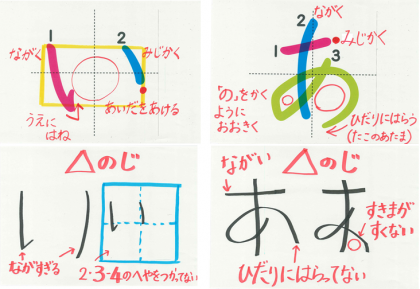 1
2
ながく
みじかく
い
うえに
はね
あいだをあける
2
ながく
1
みじかく
3
あ
「の」をかく
ように
おおきく
ひだりにはらう
(たこのあたま)
△のじ
い
い
ながすぎる
2・3・4のへやをつかってない
△のじ
ながい
あ
あ
すきまが
すくない
ひだりにはらってない